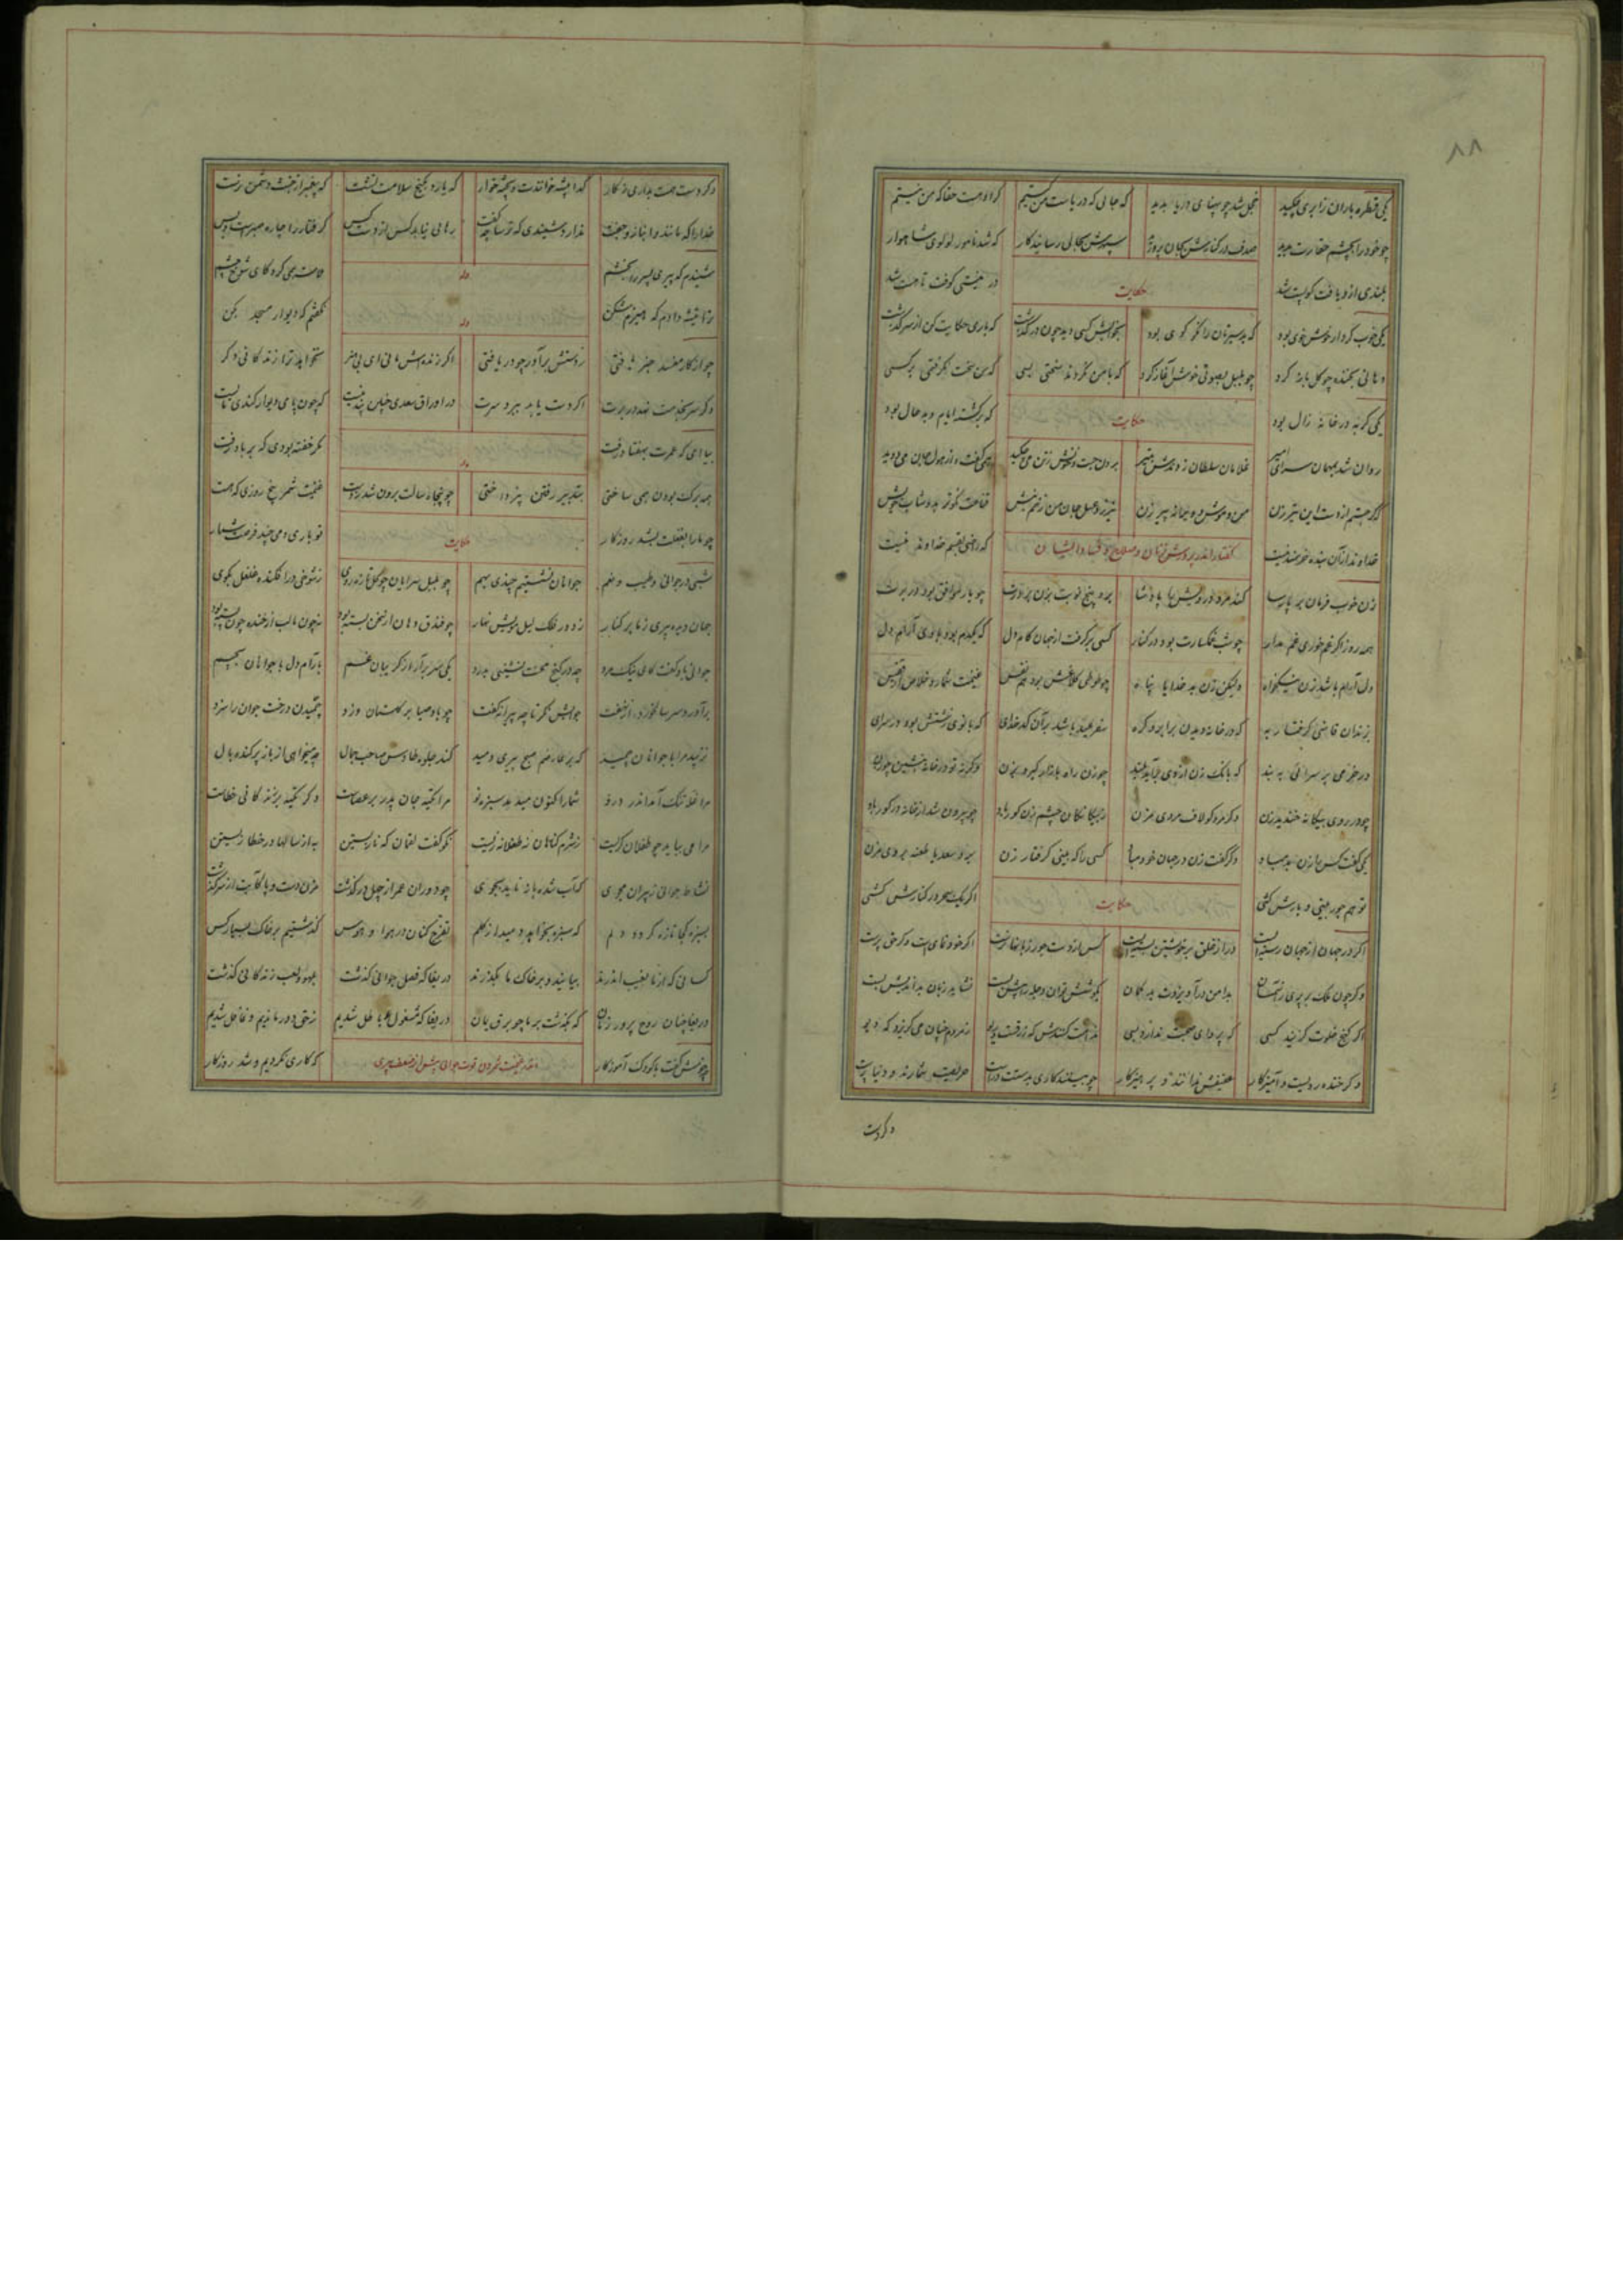 ۸۸
یکی قطره باران ز ابری چکید خجل شد چو پهنای دریا بدید که جائی که دریاست من کیستم گر او هست حقا که من نیستم
چو خود را بچشم حقارت بدید صدف در کنارش بجان پرورید سپهرش بجائی رسانید کار که شد نامور لولوی شاهوار
بلندی از و یافت کو پست شد در نیستی کوفت تا هست شد
حکایت
یکی خوب کردار خوش خوی بود که بد سیرتان را نکو گوی بود بخوابش کسی دید چون درگذشت که باری حکایت کن از سرگذشت
دهانی بخنده چو گل باز کرد چو بلبل بصوتی خوش آغاز کرد که با من نکردند سختی بسی که من سخت نگرفتمی بر کسی
حکایت
یکی گربه در خانه زال بود که برگشته ایام و بد حال بود
روان شد بمهمان سرای امیر غلامان سلطان زدندش بتیر
همی گفت و از هول جان می دوید
اگر جستم از دست این تیرزن من و موش و ویرانه پیرزن
خداوند از آن بنده خرسند نیست که راضی بقسم خداوند نیست
گفتار اندر پرورش زنان و صلاح و فساد ایشان
زن خوب فرمان بر پارسا کند مرد درویش را پادشا برو پنج نوبت بزن بر درت چو یار موافق بود در برت
همه روز اگر غم خوری غم مدار چو شب غمگسارت بود در کنار
دل آرام باشد زن نیکخواه ولیکن زن بد خدایا پناه
بزندان قاضی گرفتار به که در خانه دیدن بر ابرو گره سفر عید باشد بر آن کدخدای که بانوی زشتش بود در سرای
در خرمی بر سرائی ببند که بانگ زن از وی برآید بلند چو زن راه بازار گیرد بزن وگرنه تو در خانه بنشین چو زن
چو در روی بیگانه خندید زن دگر مرد گو لاف مردی مزن ز بیگانگان چشم زن کور باد چو بیرون شد از خانه در گور باد
کسی را که بینی گرفتار زن
تو هم جور بینی و بارش کشی اگر یک سحر در کنارش کشی
حکایت
اگر در جهان از جهان رسته ایست در از خلق بر خویشتن بسته ایست کس از دست جور زبانها نرست اگر خودنمای است و گر حق پرست
وگر چون ملک بر پری ز آسمان بدامن در آویزدت بدگمان بکوشش توان دجله را پیش بست نشاید زبان بداندیش بست
اگر کنج خلوت گزیند کسی که پروای صحبت ندارد بسی
وگر خنده رویست و آمیزگار عفیفش ندانند و پرهیزگار
وگر دست
وگر دست همت بداری ز کار گدا پیشه خوانندت و پخته خوار که یارد بکنج سلامت نشست که پیغمبر از خبث دشمن نرست
خدا را که مانند و انباز و جفت ندارد شنیدی که ترسا چه گفت رهائی نیابد کس از دست کس گرفتار را چاره صبرست و بس
شنیدم که پیری پسر را بخشم ملامت همی کرد کای شوخ چشم
وله
ترا تیشه دادم که هیزم شکن نگفتم که دیوار مسجد بکن
وله
اگر دست یابد ببرد سرت
بیا ای که عمرت بهفتاد رفت مگر خفته بودی که بر باد رفت
وله
همه برگ بودن همی ساختی بتدبیر رفتن نپرداختی چو پنجاه سالت برون شد ز دست غنیمت شمر پنج روزی که هست
چو ما را بغفلت بشد روزگار تو باری دمی چند فرصت شمار
حکایت
شبی در جوانی و طیب و نعم جوانان نشستیم چندی بهم چو بلبل سرایان چو گل تازه روی ز شوخی در افکنده غلغل بکوی
جهان دیده پیری ز ما بر کنار ز دور فلک لیل مویش نهار چو فندق دهان از سخن بسته بود نه چون ما لب از خنده چون پسته بود
جوانی بدو گفت کای نیک مرد چه در کنج حسرت نشینی بدرد یکی سر برآر از گریبان غم بآرام دل با جوانان بچم
برآورد سر سالخورد از نهفت جوابش نگر تا چه پیرانه گفت چو باد صبا بر گلستان وزد چمیدن درخت جوان را سزد
نزیبد مرا با جوانان چمید که بر عارضم صبح پیری دمید کند جلوه طاوس صاحب جمال چه میخواهی از باز برکنده بال
شما را کنون میدمد سبزه نو مرا تکیه جان پدر بر عصاست دگر تکیه بر زندگانی خطاست
مرا می بباید چو طفلان گریست ز شرم گناهان نه طفلانه زیست نکو گفت لقمان که نازیستن به از سالها در خطا زیستن
نشاط جوانی ز پیران مجوی که آب شده باز ناید بجوی چو دوران عمر از چهل درگذشت مزن دست و پا کابت از سر گذشت
بسبزه کجا تازه گردد دلم که سبزه بخواهد دمید از گلم تفرج کنان در هوا و هوس گذشتیم بر خاک بسیار کس
کسانی که از ما بغیب اندرند بیایند و بر خاک ما بگذرند دریغا که فصل جوانی گذشت بلهو و لعب زندگانی گذشت
دریغا چنان روح پرور زمان که بگذشت بر ما چو برق یمان دریغا که مشغول باطل شدیم ز حق دور ماندیم و غافل شدیم
چه خوش گفت با کودک آموزگار که کاری نکردیم و شد روزگار